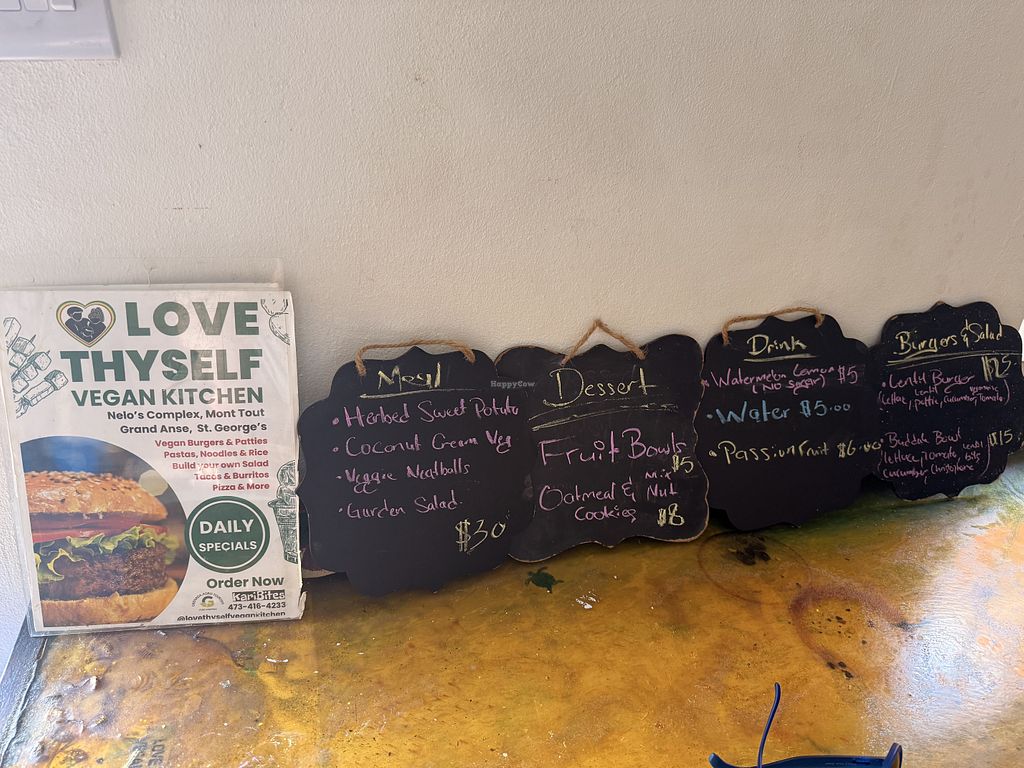 LOVE
THYSELF
VEGAN KITCHEN
Nelo's Complex, Mont Tout
Grand Anse, St. George's
Vegan Burgers & Patties
Pastas, Noodles & Rice
Build your own Salad
Tacos & Burritos
Pizza & More
DAILY
SPECIALS
Order Now
KariBites
473-416-4233
@lovethyselfvegankitchen
Meal
• Herbed Sweet Potato
• Coconut Cream Veg
• Veggie Meatballs
• Garden Salad
$30
HappyCow
Dessert
Fruit Bowls
$5
Oatmeal & Mix Nut
Cookies $8
Drink
• Watermelon Lemon $5
(No sugar)
• Water $5.00
• Passion fruit $6.00
Burgers & Salad
• Lentil Burger
(Lettuce, Lentil Pattie, Cucumber, Tomato)
• Buddah Bowl $15
lettuce, Tomato
cucumber, Christophene)